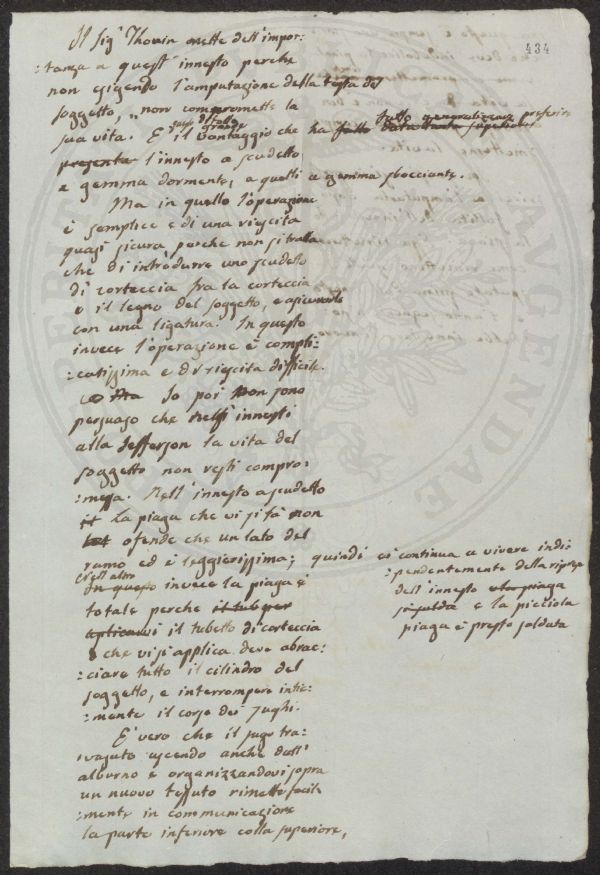 434
Il Sig.r Thouin mette dell'impor:
:tanza a quest'innesto perche
non esigendo l'amputazione della testa del
soggetto, non compromette la
sua vita. E il vantaggio che ha fatto generalizzare preferire
presenta l'innesto a scudetto
a gemma dormente, a quelli a gemma sbocciante.
Ma in quello l'operazione
è semplice e di una riescita
quasi sicura perche non si tratta
che di introdurre uno scudetto
di corteccia fra la corteccia
e il legno del soggetto, e assicurarlo
con una ligatura. In questo
invece l'operazione è compli:
:catissima e di riescita difficile.
Ma Io poi non sono
persuaso che nell'innesti
alla Jefferson la vita del
soggetto non resti compro:
:messa. Nell'innesto a scudetto
la piaga che vi si fà non
ofende che un lato del
ramo ed è leggierissima; quindi ei continua a vivere indi:
:pendentemente della ripresa
dell'innesto e la piaga
si salda e la picciola
piaga è presto saldata
Nell'altro
In questo invece la piaga è
totale perche il tubo per
applicarvi il tubetto di corteccia
che vi si applica deve abrac:
:ciare tutto il cilindro del
soggetto, e interrompere intie:
:mente il corso dei sughi.
E' vero che il sugo tra:
:vasato uscendo anche dall'
alburno e organizzandovi sopra
un nuovo tessuto rimette facil:
:mente in communicazione
la parte inferiore colla superiore,